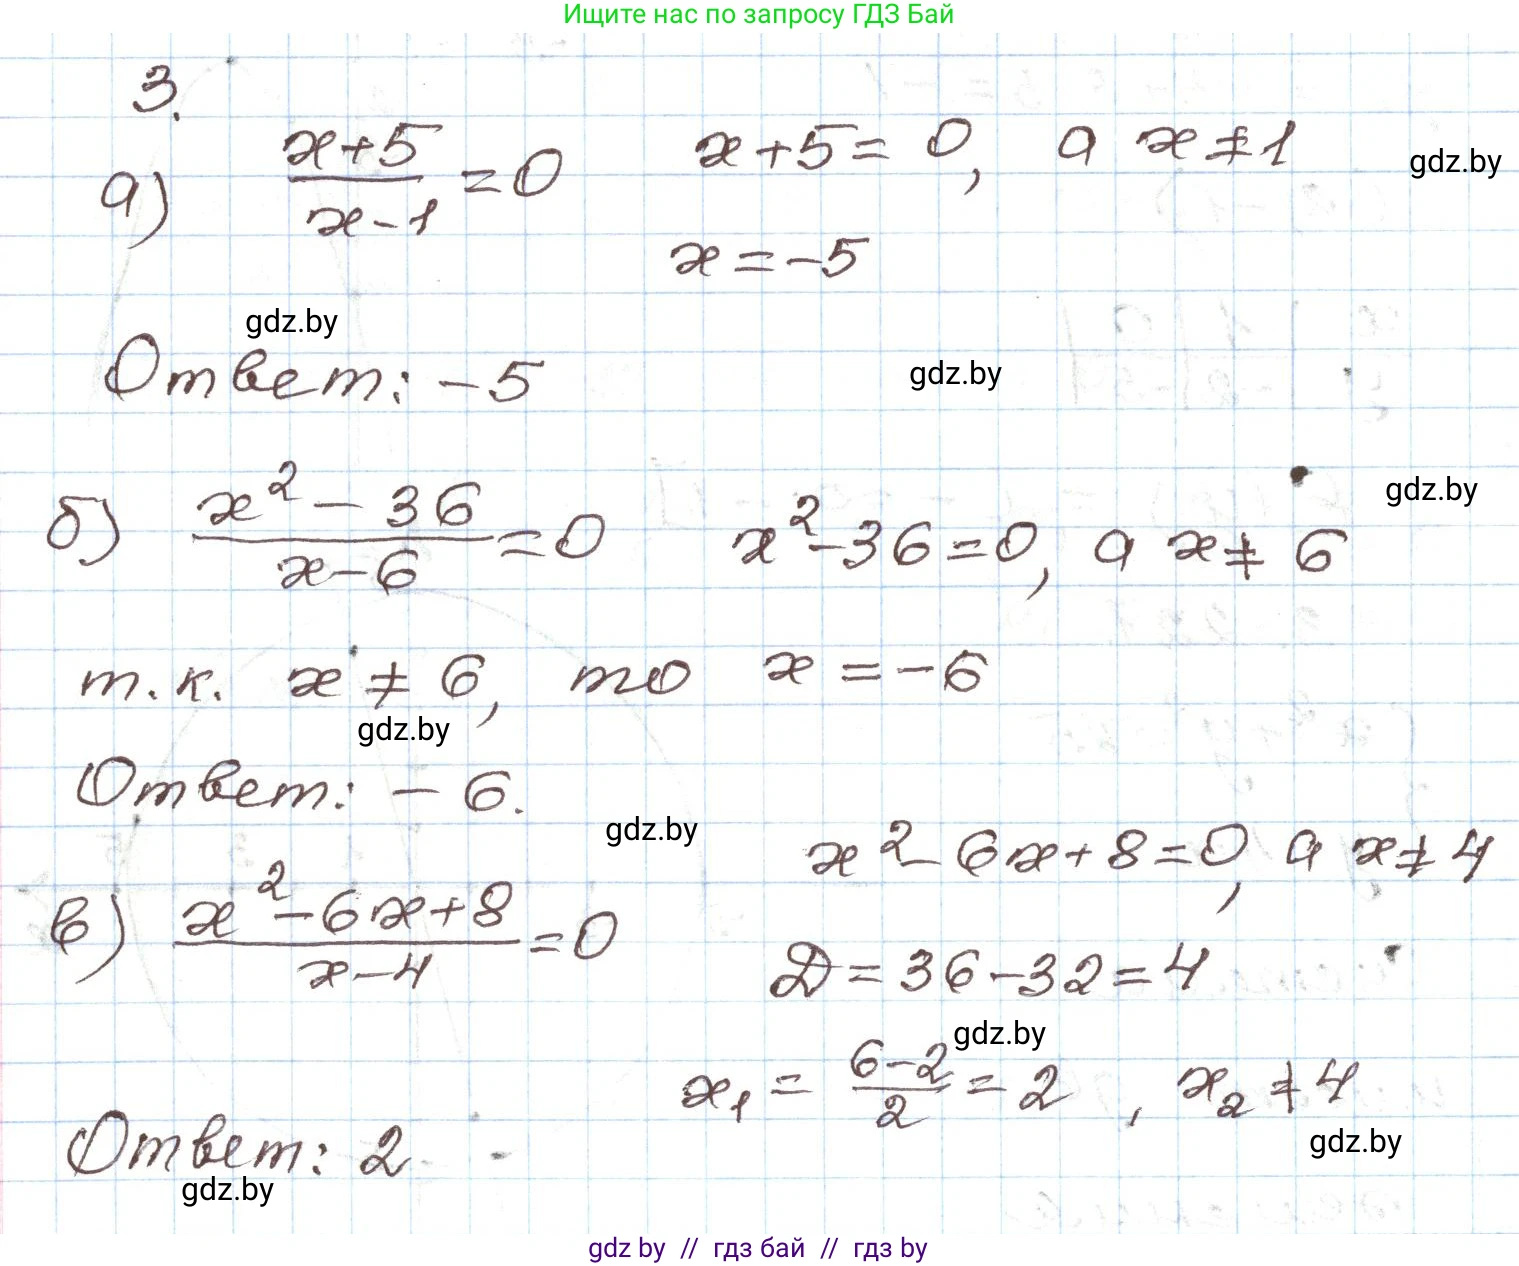 Ищите нас по запросу ГДЗ Бай
3.
а) (x+5)/(x-1) = 0    x+5 = 0, а x ≠ 1
gdz.by
x = -5
gdz.by
Ответ: -5
gdz.by
gdz.by
б) (x² - 36)/(x-6) = 0    x² - 36 = 0, а x ≠ 6
т.к. x ≠ 6, то x = -6
gdz.by
Ответ: -6.
gdz.by
x² - 6x + 8 = 0, а x ≠ 4
в) (x² - 6x + 8)/(x-4) = 0
D = 36 - 32 = 4
gdz.by
x₁ = (6-2)/2 = 2, x₂ ≠ 4
gdz.by
Ответ: 2
gdz.by
gdz by // гдз бай // гдз by